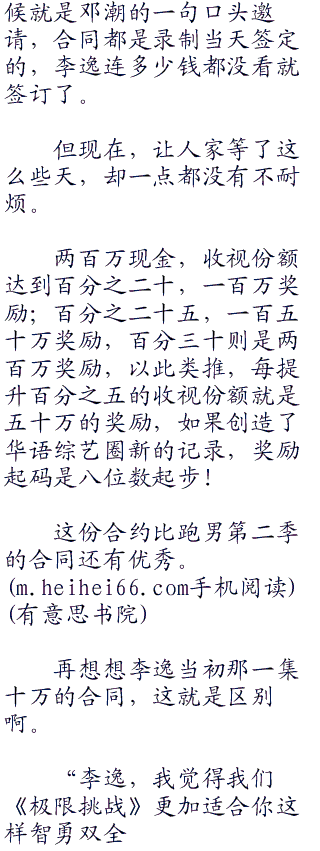 候就是邓潮的一句口头邀
请，合同都是录制当天签定
的，李逸连多少钱都没看就
签订了。
但现在，让人家等了这
么些天，却一点都没有不耐
烦。
两百万现金，收视份额
达到百分之二十，一百万奖
励；百分之二十五，一百五
十万奖励，百分三十则是两
百万奖励，以此类推，每提
升百分之五的收视份额就是
五十万的奖励，如果创造了
华语综艺圈新的记录，奖励
起码是八位数起步！
这份合约比跑男第二季
的合同还有优秀。
(m.heihei66.com手机阅读)
(有意思书院)
再想想李逸当初那一集
十万的合同，这就是区别
啊。
“李逸，我觉得我们
《极限挑战》更加适合你这
样智勇双全